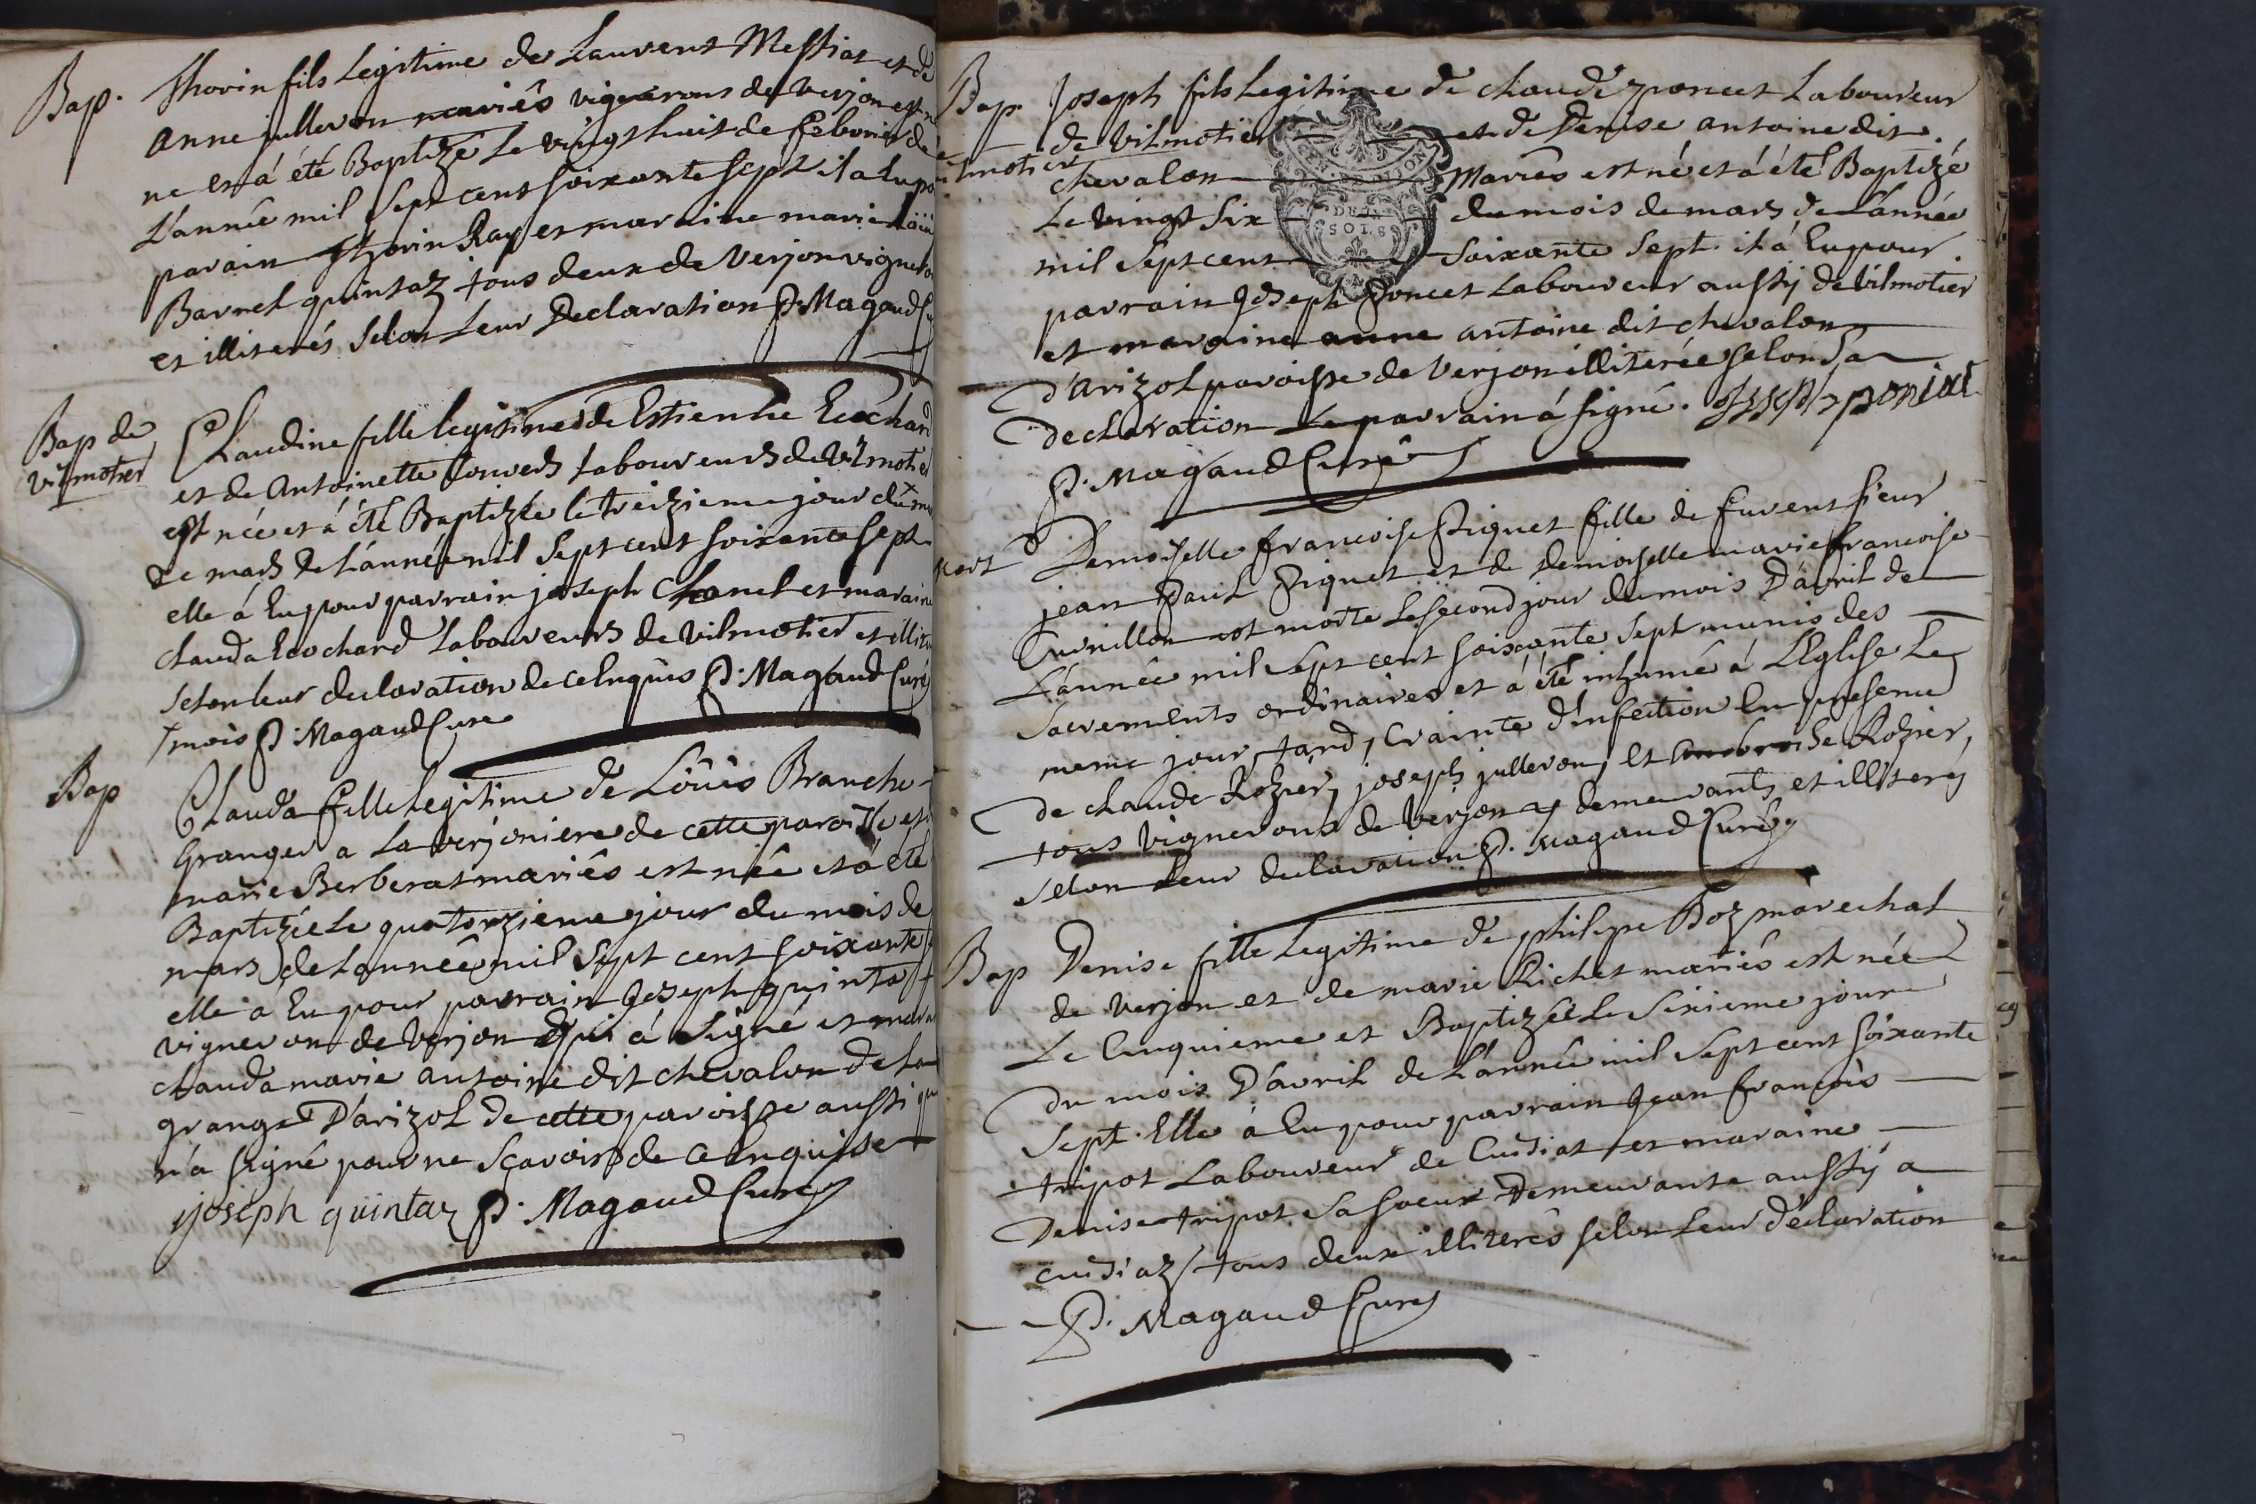 Bap. Thorin fils Legitime de Laurent Messiat et de
anne jullevon mariés vignerons de verjon est
ne et á été Baptizé Le vingt huit de febvrier de
L'année mil sept cent soixante sept il a Eu po
parain Thorin Ray et maraine marie
Barnel quintaz tous deux de Verjon vignero
et illiterés selon Leur Declaration P. Magaud Cu
Bap de
vilmotier
Claudine fille legitime de Estienne Ecochard
et de Antoinette Convers Laboureurs de vilmotier
est née et á été Baptizée le treizieme jour du +
de mars de L'année mil sept cent soixante sept
elle á Eu pour parrain joseph Chanel et maraine
clauda Ecochard Laboureurs de vilmotier et illite
selon leur declaration de ce Enquis P. Magaud Curé
+ mois P. Magaud Curé
Bap
Clauda fille legitime de Loüis Branche
Granger a La verjoniere de cette paroisse et
marie Berberat mariés est née et á été
Baptizée Le quatorzieme jour du mois de
mars de Lannée mil sept cent soixante
elle a Eu pour parrain Joseph quinta
vigneron de verjon qui á signé et mara
clauda marie antoine dit chevalon de La
grange D'arizol de cette paroisse aussi qui
n'a signé pour ne sçavoir de ce Enquise
joseph quintaz P. Magaud Curé
Bap
vilmotier
Joseph fils Legitime de claude poncet Laboureur
de vilmotier et de Denise antoine dit
chevalon mariés est né et á été Baptizé
Le vingt six du mois de mars de L'année
mil sept cent soixante sept il á Eu pour
parrain Joseph Poncet Laboureur aussy de vilmotier
et maraine anne antoine dit chevalon
D'arizol paroisse de Verjon illiterée selon sa
declaration Le parrain á signé. Joseph poncet
P. Magaud Curé
mort
Demoiselle francoise Piquet fille de fuvent sieur
jean Paul Piquet et de demoiselle marie francoise
Cuvillon est morte Le second jour du mois D'avril de
L'année mil sept cent soixante sept munis des
sacrements ordinaires et á été inhumé á L'Eglise Le
meme jour tard, crainte d'infection En presence
de claude Rozier, joseph jullevon, et Ambroise Rozier,
tous vignerons de verjon y demeurants et illiterés
selon Leur declaration P. Magaud Curé
Bap
Denise fille Legitime de philippe Boz marechal
de verjon et de marie Richet mariés est née
Le Cinquieme et Baptizée Le sixieme jour
du mois D'avril de L'année mil sept cent soixante
sept. Elle á Eu pour parrain Jean francois
tripot Laboureur de Cuisiat et maraine
Denise tripot sa soeur Demeurante aussy a
cuisiaz, tous deux illiterés selon Leur déclaration
P. Magaud Curé
GEN. DE DIJON
DEUX
SOLS